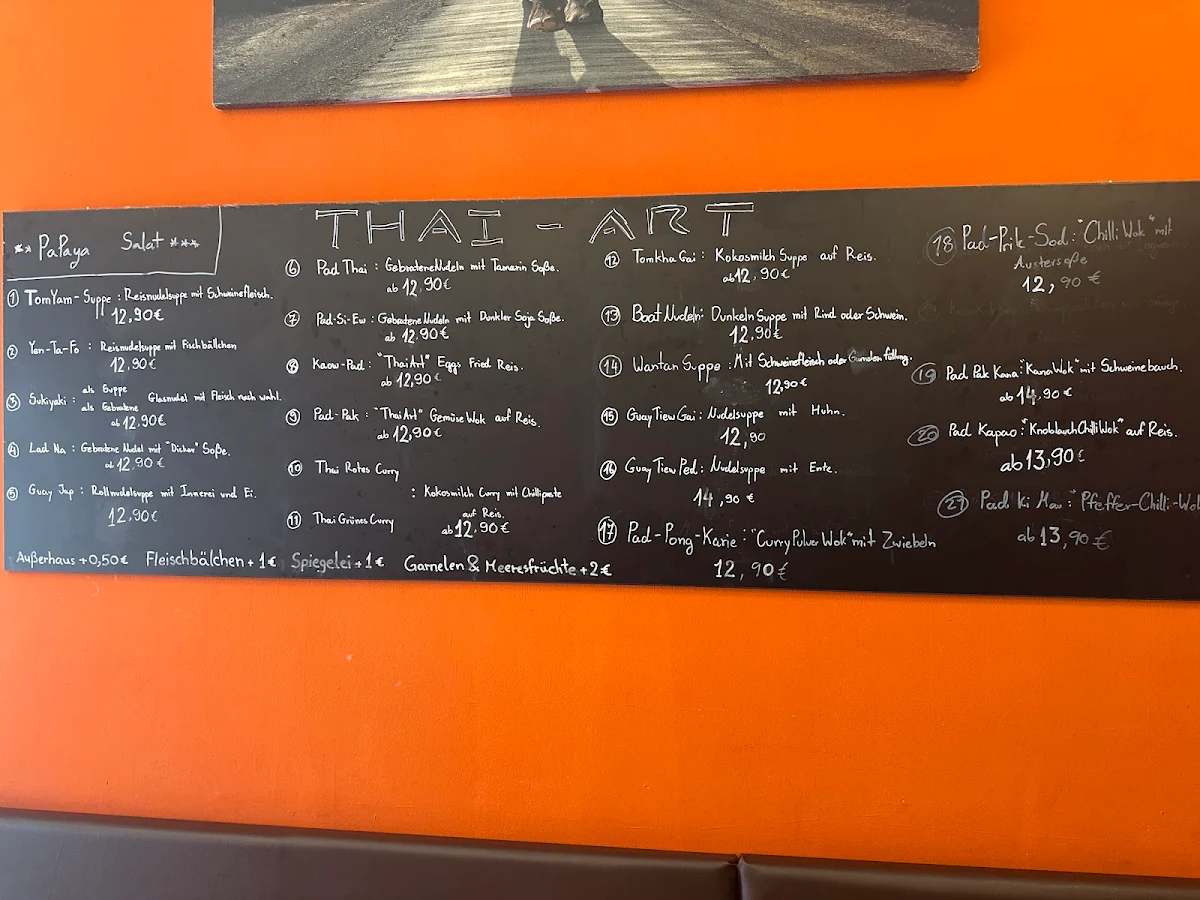 THAI - ART
** PaPaya Salat ***
1 TomYam-Suppe : Reisnudelsuppe mit Schweinefleisch.
12,90€
2 Yen-Ta-Fo : Reisnudelsuppe mit Fischbällchen
12,90€
3 Sukiyaki : als Suppe
als Gebratene Glasnudel mit Fleisch nach wahl.
ab 12,90€
4 Lad Na : Gebratene Nudel mit "Dicker" Soße.
ab 12,90€
5 Guay Jap : Rollnudelsuppe mit Innerei und Ei.
12,90€
6 Pad Thai : Gebratene Nudeln mit Tamarin Soße.
ab 12,90€
7 Pad-Si-Ew : Gebratene Nudeln mit Dunkler Soja Soße.
ab 12,90€
8 Kaow-Pad : "Thai Art" Eggs Fried Reis.
ab 12,90€
9 Pad-Pak : "Thai Art" Gemüse Wok auf Reis.
ab 12,90€
10 Thai Rotes Curry
: Kokosmilch Curry mit Chillipaste
auf Reis.
11 Thai Grünes Curry
ab 12,90€
12 Tomkha Gai : Kokosmilch Suppe auf Reis.
ab 12,90€
13 Boat Nudeln : Dunkeln Suppe mit Rind oder Schwein.
12,90€
14 Wantan Suppe : Mit Schweinefleisch oder füllung.
12,90€
15 Guay Tiew Gai : Nudelsuppe mit Huhn.
12,90
16 Guay Tiew Ped : Nudelsuppe mit Ente.
14,90 €
17 Pad-Pong-Karie : "Curry Pulver Wok" mit Zwiebeln
12,90€
18 Pad-Prik-Sod : "Chilli Wok" mit
Austersoße
12,90€
19 Pad Pak Kana : "Kana Wok" mit Schweinebauch.
ab 14,90€
20 Pad Kapao : "Knoblauch Chilli Wok" auf Reis.
ab 13,90€
21 Pad Ki Mau : "Pfeffer-Chilli-Wok
ab 13,90€
Außerhaus +0,50€ Fleischbälchen +1€ Spiegelei +1€ Garnelen & Meeresfrüchte +2€